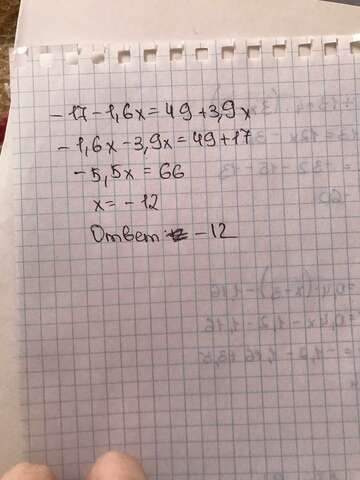 -17-1,6x=49+3,9x
-1,6x-3,9x=49+17
-5,5x=66
x=-12
Ответ -12